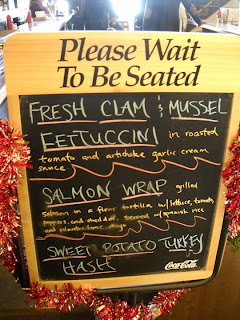 Please Wait
To Be Seated
FRESH CLAM & MUSSEL
FETTUCCINI in roasted
tomato and artichoke garlic cream
sauce
SALMON WRAP grilled
salmon in a flour tortilla w/ lettuce, tomato,
and cheddar. Served w/ spanish rice
and
SWEET POTATO TURKEY
HASH
Coca-Cola